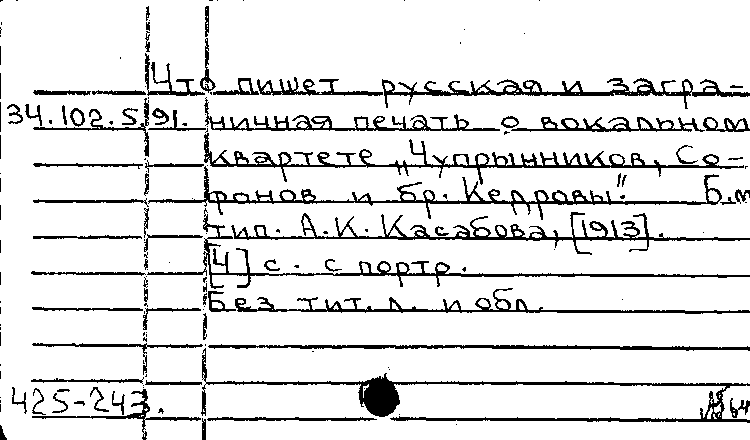 Что пишет русская и загра-
34.102.5.91. ничная печать о вокальном
квартете „Чупрынников, Со-
фонов и бр. Кедровы". Б.м
тип. А.К. Касабова, [1913].
[4] с. с портр.
Без тит. л. и обл.
425-243.